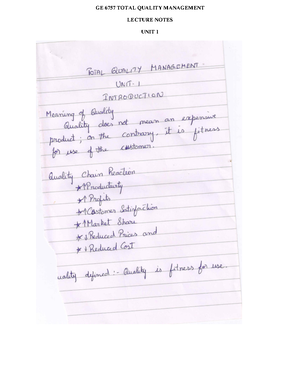 GE 6757 TOTAL QUALITY MANAGEMENT
LECTURE NOTES
UNIT 1
TOTAL QUALITY MANAGEMENT
UNIT-1
INTRODUCTION
Meaning of Quality
Quality does not mean an expensive
product; on the contrary, it is fitness
for use of the customer.
Quality Chain Reaction
*↑Productivity
*↑Profits
*↑Customer Satisfaction
*↑Market Share
*↓Reduced Prices and
*↓Reduced Cost
uality defined :- Quality is fitness for use.